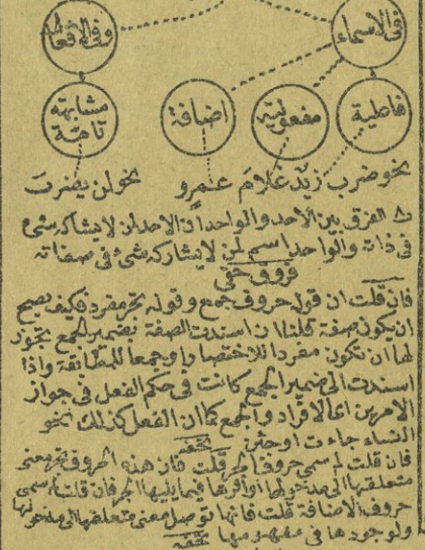 فى الاسماء
وفى الافعال
فاعلية
مفعولية
اضافة
مشابهة تامة
نحو ضرب زيد غلام عمرو نحو لن يضرب
الفرق بين الاحد والواحد ان الاحد لمن لا يشاركه شئ
فى ذاته والواحد اسم لمن لا يشاركه شئ فى صفاته
فروق حقى
فان قلت ان قوله حروف جمع وقوله تجر مفرد فكيف يصح
ان يكون صفة قلنا ان اسندت الصفة بضمير الجمع يجوز
لها ان تكون مفردا للاختصار او جمعا للمطابقة واذا
اسندت الى ضمير الجمع كانت فى حكم الفعل فى جواز
الامرين اى الافراد والجمع كما ان الفعل كذلك نحو
النساء جاءت او جئن تحفه
فان قلت لم سمى حروف الجر قلت فان هذه الحروف تجر معنى
متعلقها الى مدخولها او اثرها فيما يليها الجر فان قلت لم سمى
حروف الاضافة قلت فانها توصل معنى متعلقها الى مدخولها
ولوجودها فى مفهومها تحفه